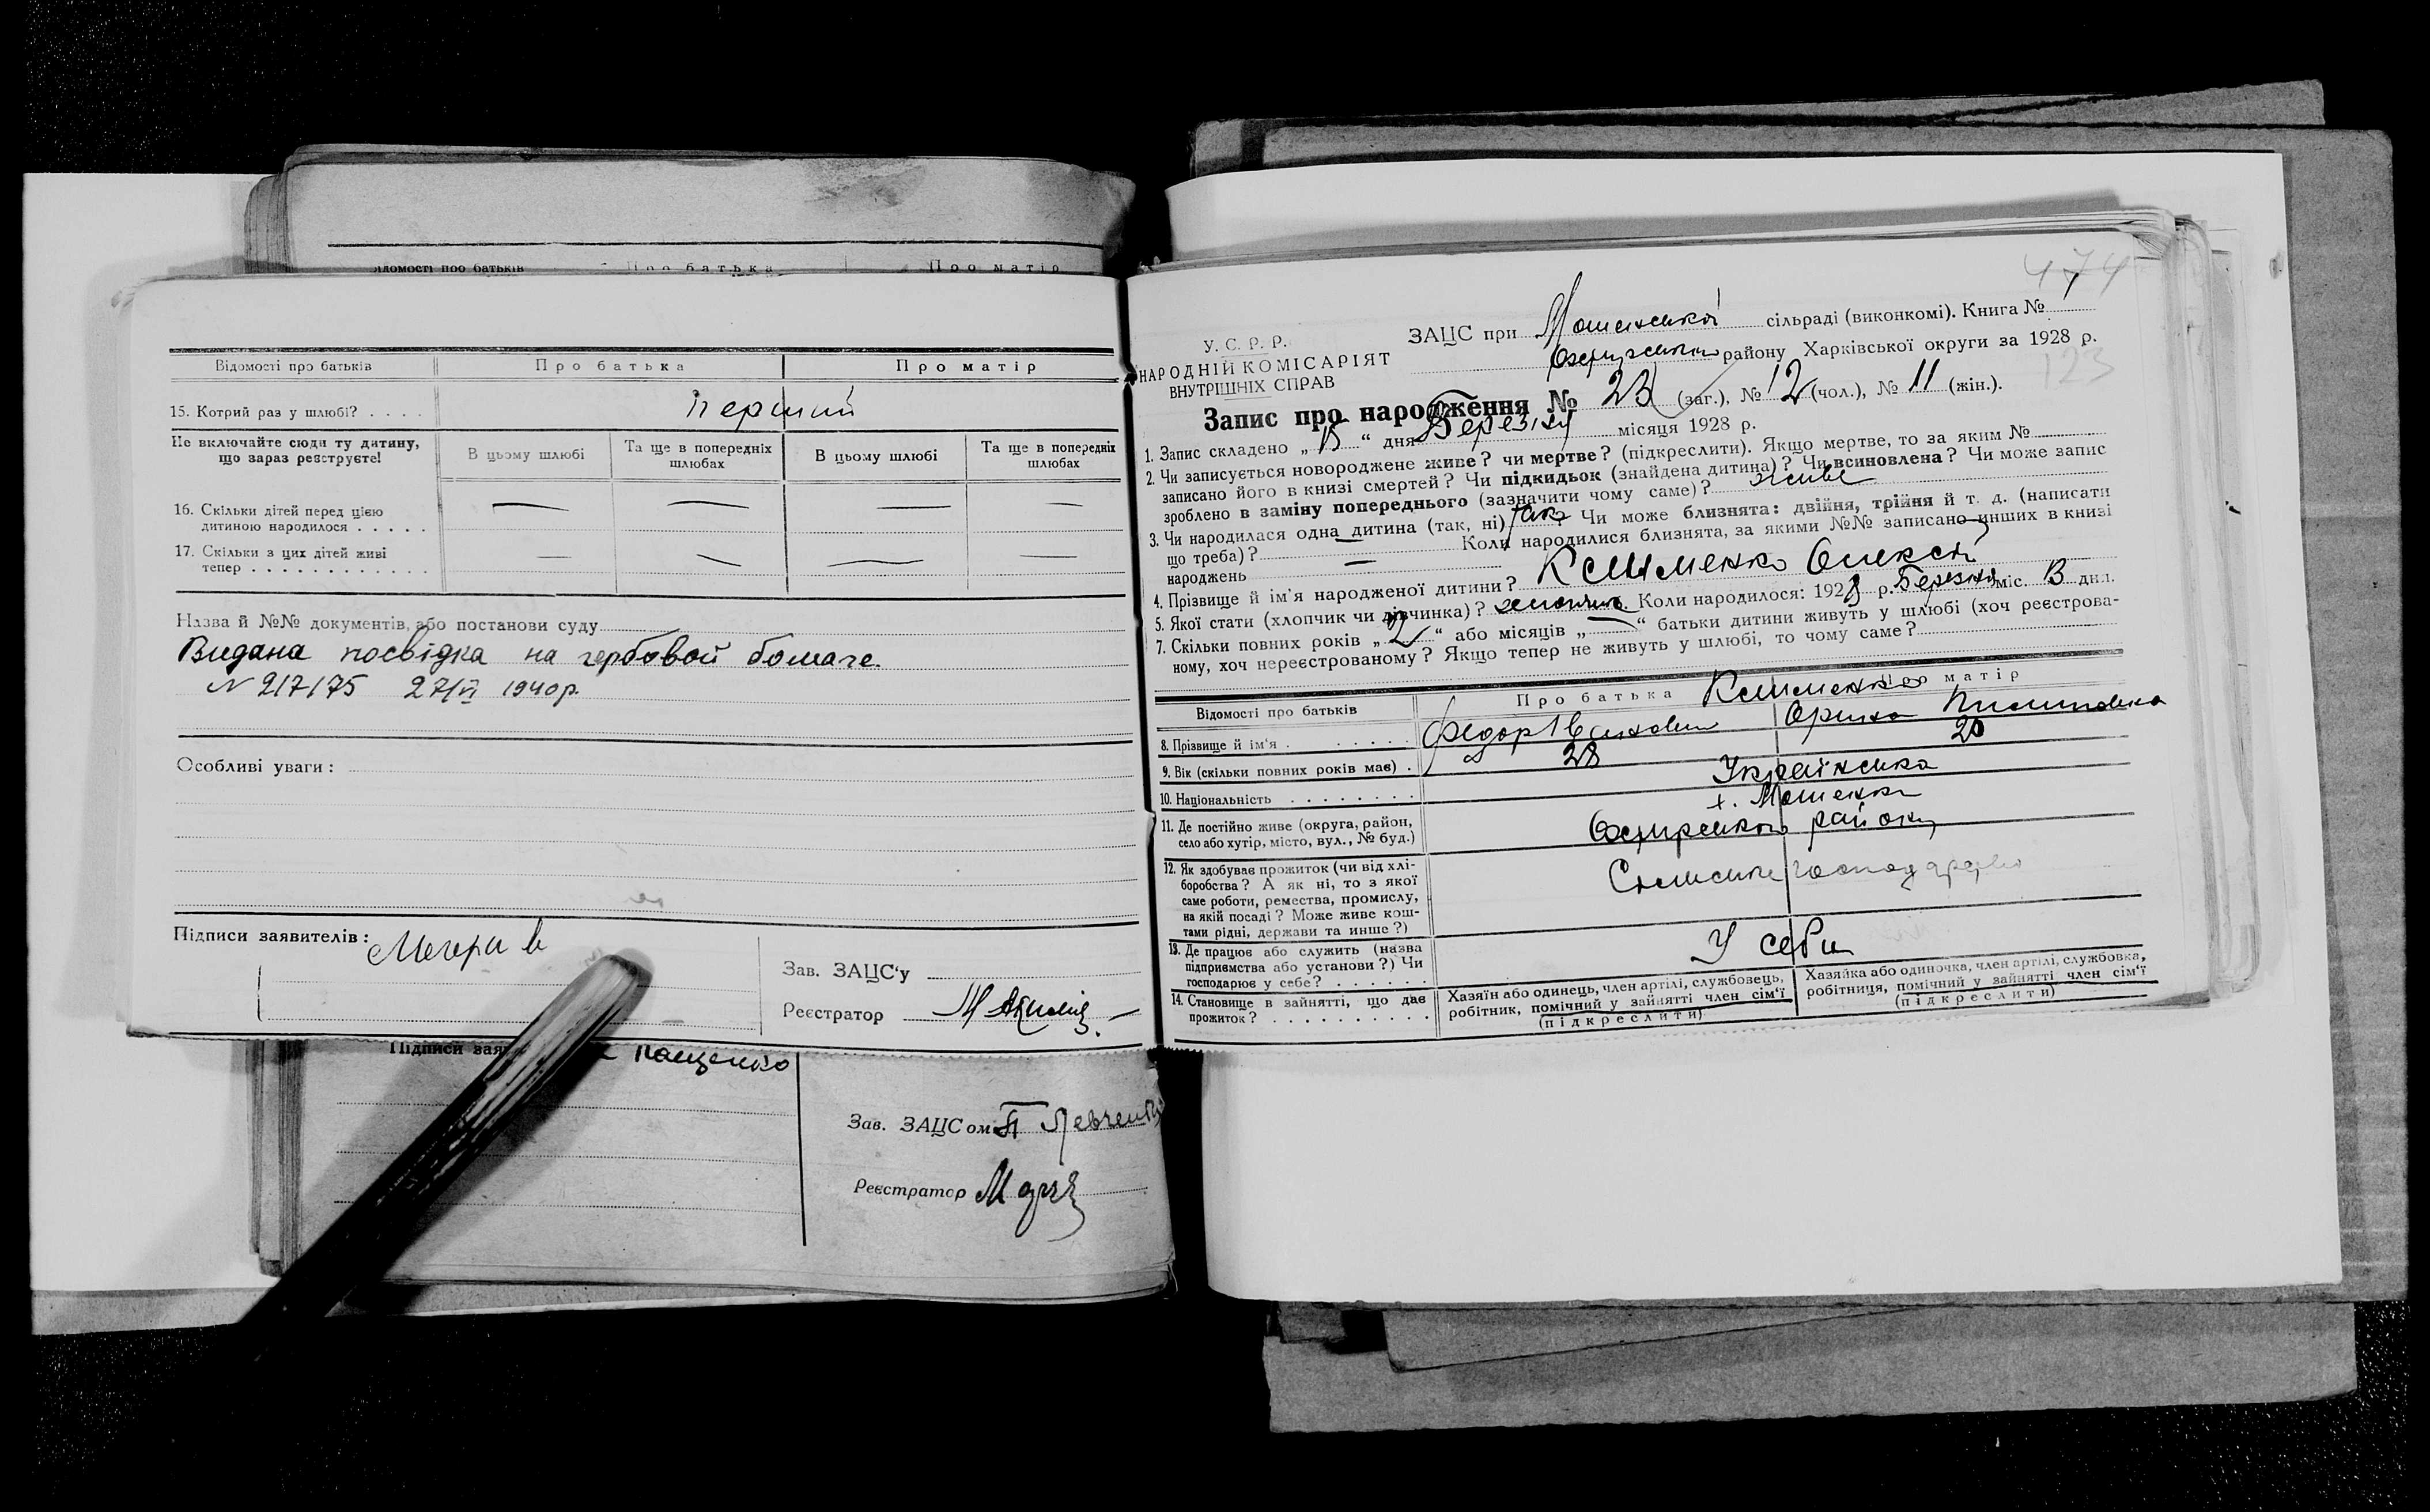 ідомості про батьків
Про батька
Про матір
Відомості про батьків
Про батька
Про матір
15. Котрий раз у шлюбі? . . . .
Перший
Не включайте сюди ту дитину,
що зараз реєструєте!
В цьому шлюбі
Та ще в попередніх
шлюбах
В цьому шлюбі
Та ще в попередніх
шлюбах
16. Скільки дітей перед цією
дитиною народилося . . . . .
— — — —
17. Скільки з цих дітей живі
тепер . . . . . . . . . . . .
— — — —
Назва й №№ документів, або постанови суду
Видана посвідка на гербовой бомаге.
N 217175 27/VI 1940р.
Особливі уваги:
Підписи заявителів:
Зав. ЗАЦС'у
Реєстратор
Підписи зая
Пащенко
Зав. ЗАЦСом П Левченко
Реєстратор
474
У.С.Р.Р.
НАРОДНІЙ КОМІСАРІЯТ
ВНУТРІШНІХ СПРАВ
ЗАЦС при Мошенської сільраді (виконкомі). Книга № 1
району Харківської округи за 1928 р.
123
Запис про народження № 23 (заг.), № 12 (чол.), № 11 (жін.).
1. Запис складено „ 13 “ дня Березня місяця 1928 р.
2. Чи записується новороджене живе? чи мертве? (підкреслити). Якщо мертве, то за яким №
записано його в книзі смертей? Чи підкидьок (знайдена дитина)? Чи всиновлена? Чи може запис
зроблено в заміну попереднього (зазначити чому саме)? живе
3. Чи народилася одна дитина (так, ні) так Чи може близнята: двійня, трійня й т. д. (написати
що треба)? — Коли народилися близнята, за якими №№ записано инших в книзі
народжень —
4. Прізвище й ім'я народженої дитини? Клименко Олексій
5. Якої стати (хлопчик чи дівчинка)? хлопчик. Коли народилося: 1928 р. Березня міс. 13 дня.
7. Скільки повних років „ 2 “ або місяців „ — “ батьки дитини живуть у шлюбі (хоч реєстрова-
ному, хоч нереєстрованому? Якщо тепер не живуть у шлюбі, то чому саме?
Відомості про батьків
Про батька
Про матір
Клименко
8. Прізвище й ім'я . . . . . .
Федор Іванович
Орина Пилиповна
9. Вік (скільки повних років має) .
28
20
10. Національність . . . . . . . .
Українська
11. Де постійно живе (округа, район,
село або хутір, місто, вул., № буд.)
х. Мошенка
району
12. Як здобуває прожиток (чи від хлі-
боробства? А як ні, то з якої
саме роботи, ремества, промислу,
на якій посаді? Може живе кош-
тами рідні, держави та инше?)
Сільське господарство
13. Де працює або служить (назва
підприємства або установи?) Чи
господарює у себе? . . . . . .
У себи
14. Становище в зайнятті, що дає
прожиток? . . . . . . . . . .
Хазяїн або одинець, член артілі, службовець,
робітник, помічний у зайнятті член сім'ї
(підкреслити)
Хазяйка або одиночка, член артілі, службовка,
робітниця, помічний у зайнятті член сім'ї
(підкреслити)